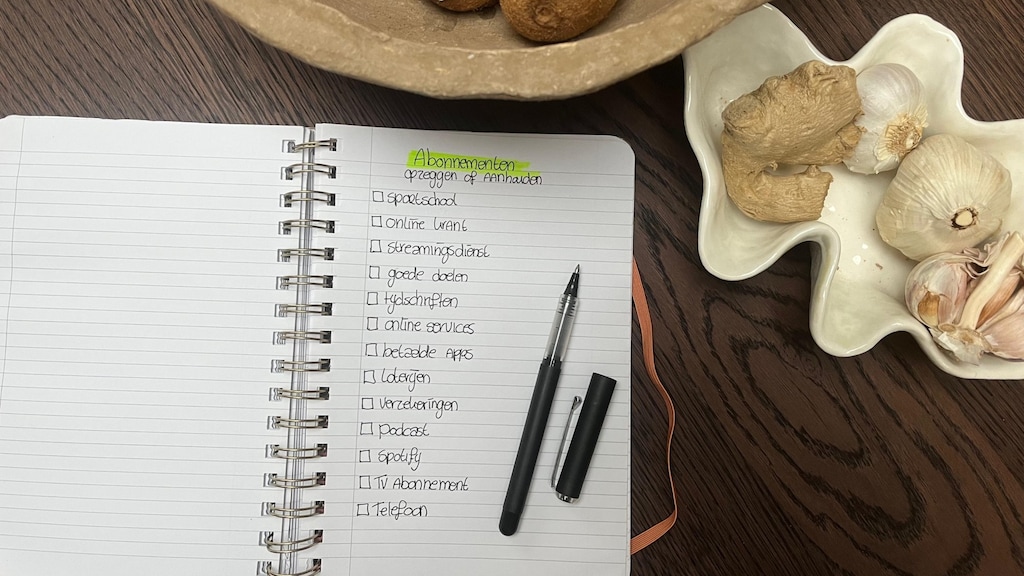 Abonnementen
opzeggen of aanhouden
sportschool
online krant
streamingsdienst
goede doelen
tijdschriften
online services
betaalde Apps
Loterijen
Verzekeringen
Podcast
Spotify
TV Abonnement
Telefoon